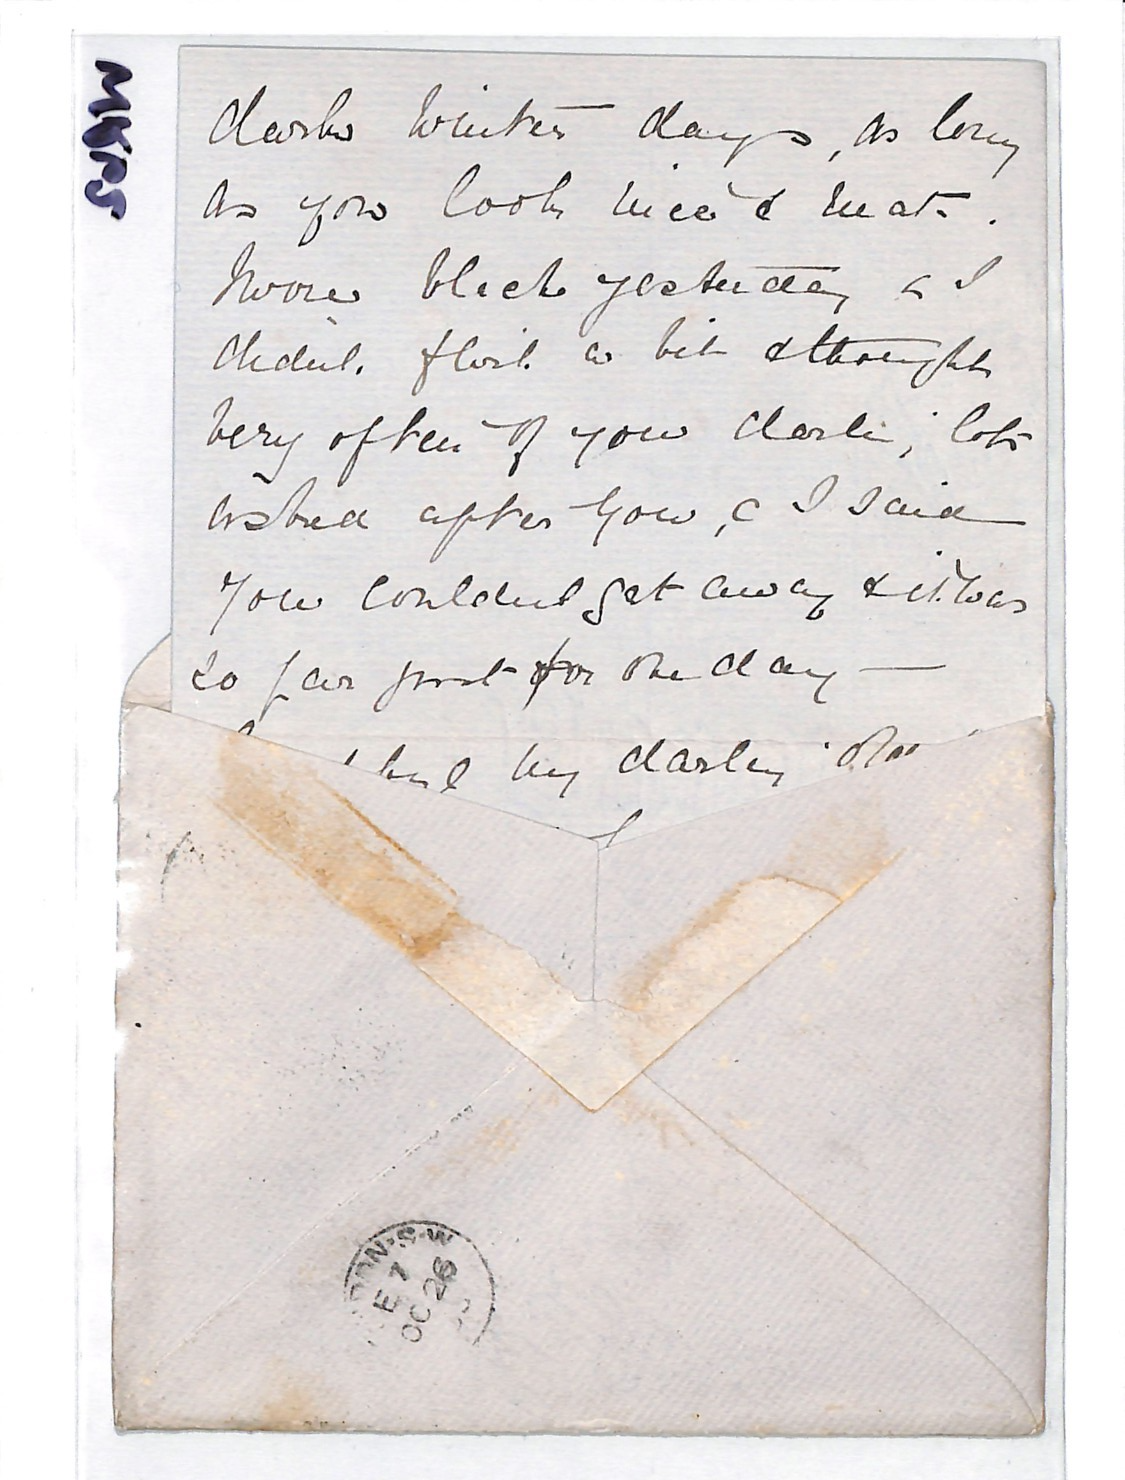 dark winter days, as long
as you look nice & neat.
Wore black yesterday & I
didnt. flirt. a bit & thought
very often of you darlin; lots
asked after you, & I said
you couldnt get away & it was
so far just for the day —
my darling
LONDON·S·W
E 7
OC 26